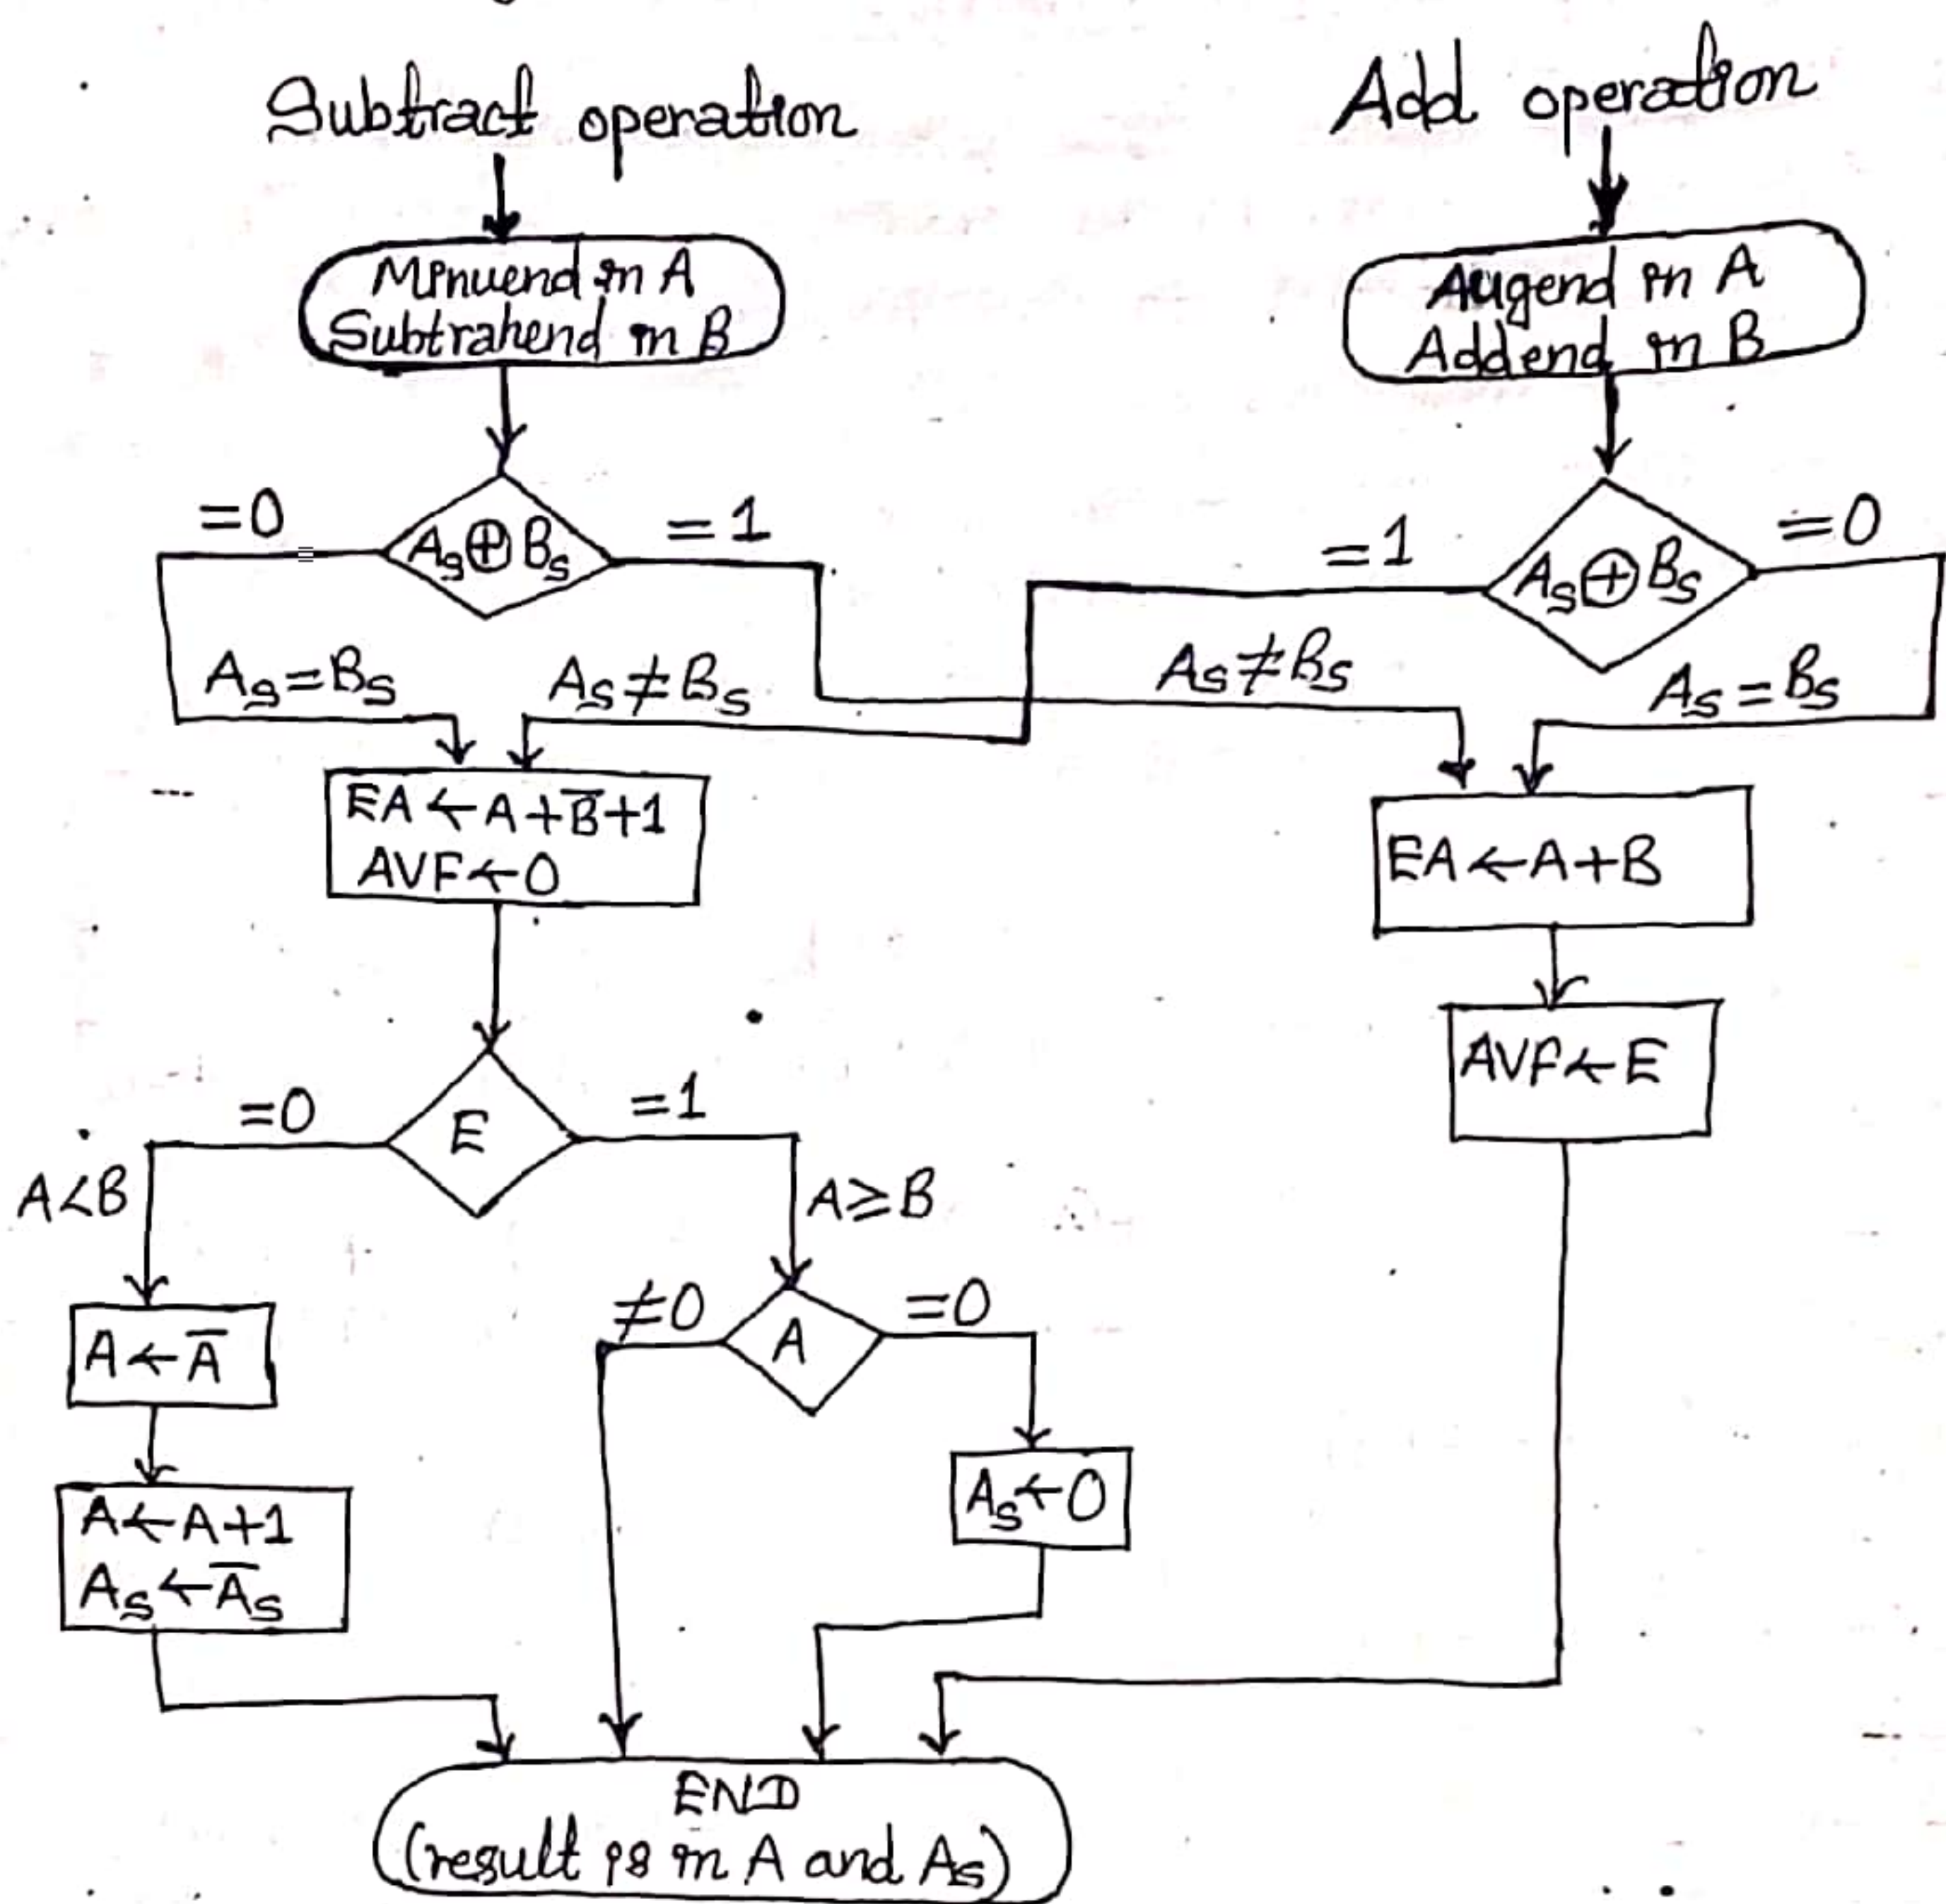 Subtract operation
Add operation
Minuend in A
Subtrahend in B
Augend in A
Addend in B
=0
A_S⊕B_S
=1
=1
A_S⊕B_S
=0
A_S=B_S
A_S≠B_S
A_S≠B_S
A_S=B_S
EA←A+B̅+1
AVF←0
EA←A+B
AVF←E
=0
E
=1
A<B
A≥B
≠0
A
=0
A←A̅
A_S←0
A←A+1
A_S←A̅_S
END
(result is in A and A_S)